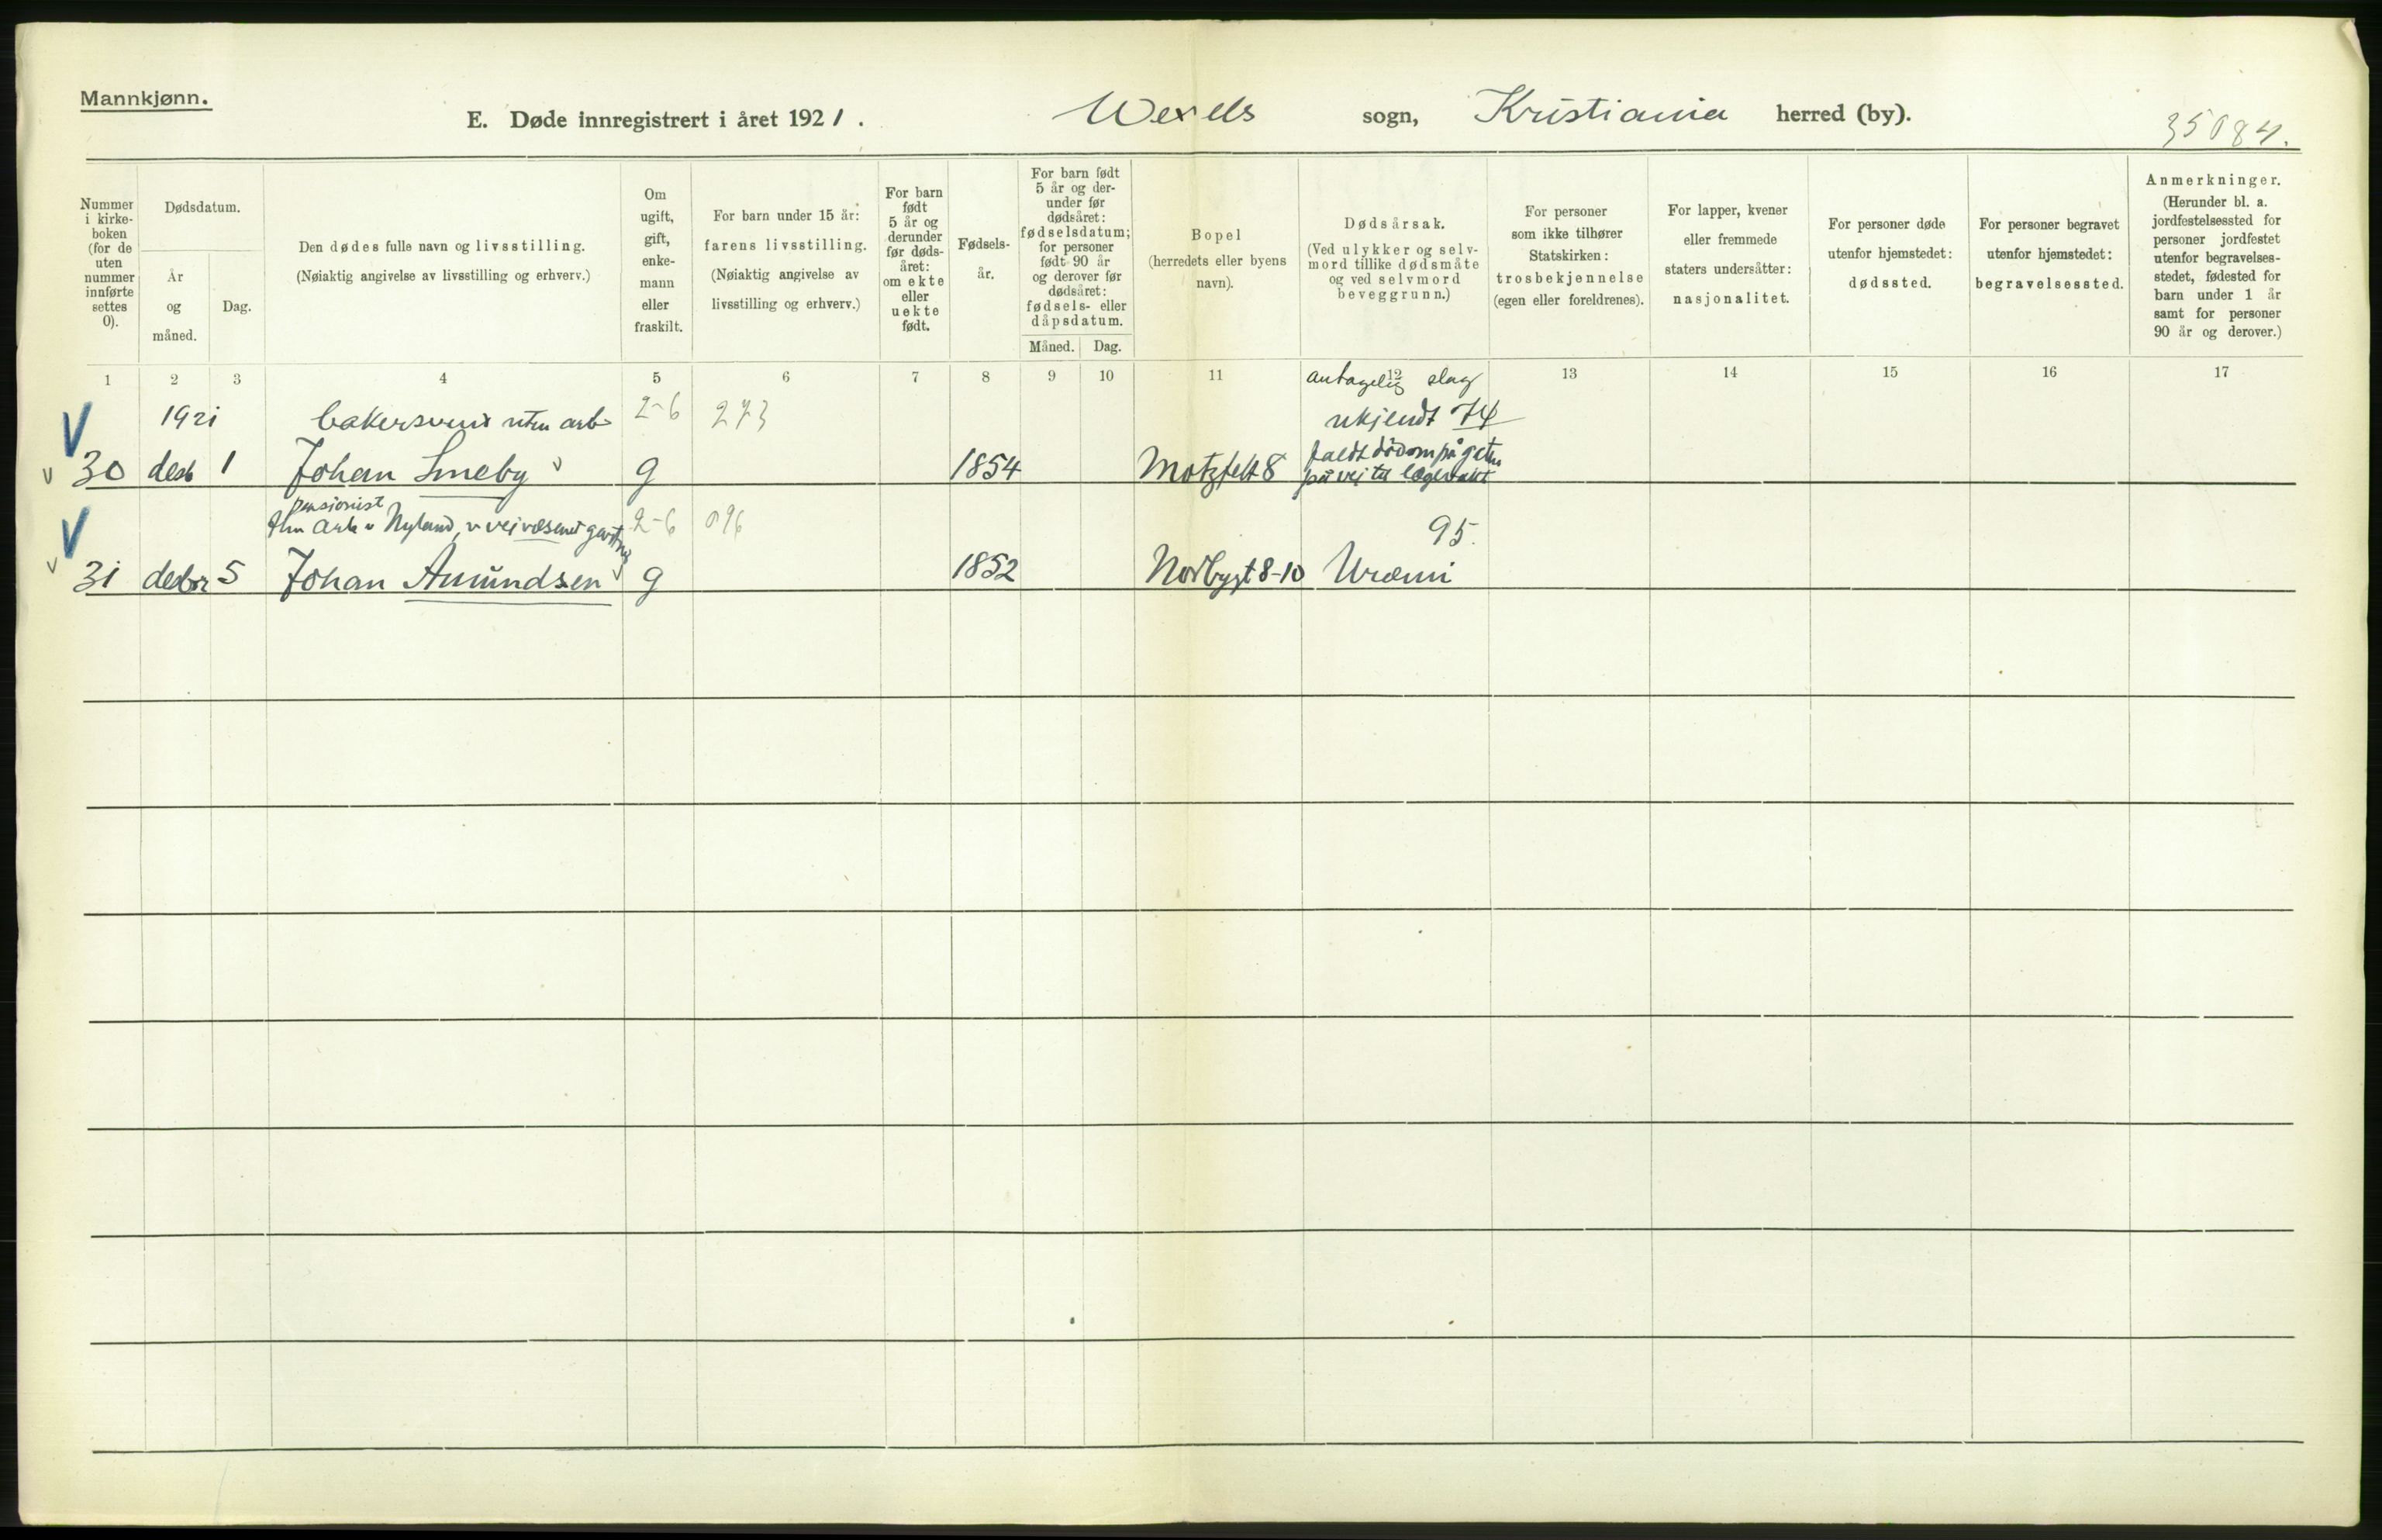 Mannkjønn.
E. Døde innregistrert i året 1921. Wexels sogn, Kristiania herred (by).
35084.
Nummer i kirke-boken (for de uten nummer innførte settes 0).
Dødsdatum.
År og måned.
Dag.
Den dødes fulle navn og livsstilling.
(Nøiaktig angivelse av livsstilling og erhverv.)
Om ugift, gift, enke-mann eller fraskilt.
For barn under 15 år:
farens livsstilling.
(Nøiaktig angivelse av
livsstilling og erhverv.)
For barn født 5 år og derunder før døds-året: om ekte eller uekte født.
Fødsels-år.
For barn født 5 år og der-under før dødsåret: fødselsdatum; for personer født 90 år og derover før dødsåret: fødsels- eller dåpsdatum.
Måned. Dag.
Bopel
(herredets eller byens
navn).
Dødsårsak.
(Ved ulykker og selv-
mord tillike dødsmåte
og ved selvmord
beveggrunn.)
For personer
som ikke tilhører
Statskirken:
trosbekjennelse
(egen eller foreldrenes).
For lapper, kvener
eller fremmede
staters undersåtter:
nasjonalitet.
For personer døde
utenfor hjemstedet:
dødssted.
For personer begravet
utenfor hjemstedet:
begravelsessted.
Anmerkninger.
(Herunder bl. a.
jordfestelsessted for
personer jordfestet
utenfor begravelses-
stedet, fødested for
barn under 1 år
samt for personer
90 år og derover.)
1 2 3 4 5 6 7 8 9 10 11 12 13 14 15 16 17
antagelig slag
1921 bakersvend uten arb 2-6 273 ukjendt 74
faldt død om på gaten
30 desb 1 Johan Smeby g 1854 Motzfeldt 8 på vei til lægevakt
pensjonist
Nyland, v veivæsenet 2-6 096 95.
31 desbr 5 Johan Amundsen g 1852 Norbygt 8-10 Uræmi